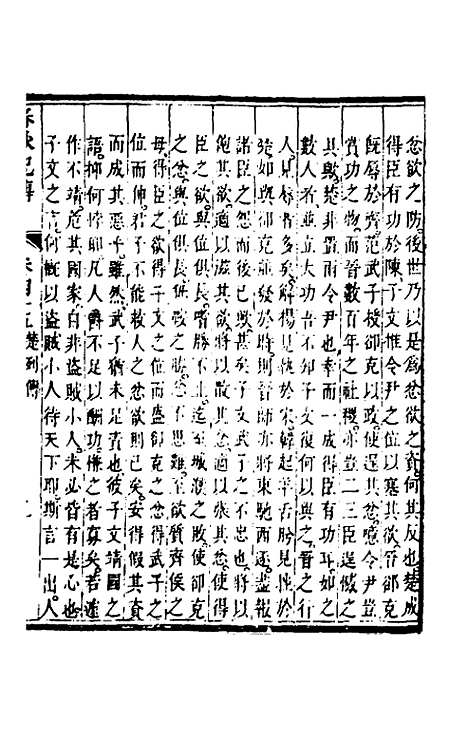 忿欲之防後世乃以是爲忿欲之資何其反也楚成
得臣有功於陳子文推令尹之位以塞其欲晉郤克
旣辱於齊范武子授郤克以政使逞其忿噫令尹豈
賞功之物而晉數百年之社稷亦豈二三臣逞憾之
具歟楚非置兩令尹也幸而一成得臣有功耳如之
數人者並立大功吾不知子文復何以與之晉之行
人見辱者多矣解於宋韓起羊舌肸見於
楚如與郤克並發於時則晉將東馳西逐盡報
諸臣之怨而後甚矣子文武子之不忠也將以
飽其欲適以滋其欲將以散其忿適以張其忿使得
臣之欲與位遂至城濮之敗使郤克
之忿與位思難至欲質齊侯之
母得臣之欲得子文之位而盛郤克之忿得武子之
位而伸君子不能救人之忿欲則已矣安得假其資
而成其惡乎雖然武子猶未足責也彼子文靖國之
語抑何悖耶凡人爵不足以酬功慊之者寡矣若遽
作不靖危其國家自非盜賊小人未必皆有是心也
子文之言何槪以盜賊小人待天下耶斯言一出人
春秋紀傳 卷四十五 楚列傳